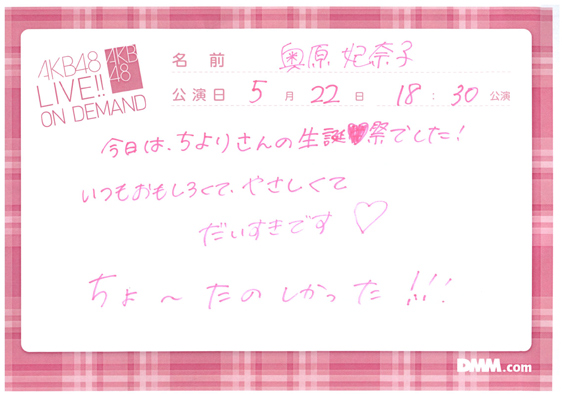 AKB48
LIVE!!
ON DEMAND
AKB
48
名前 奥原 妃奈子
公演日 5月 22日 18:30公演
今日は、ちよりさんの生誕♥祭でした!
いつもおもしろくて、やさしくて
だいすきです♡
ちょ〜たのしかった!!!
DMM.com